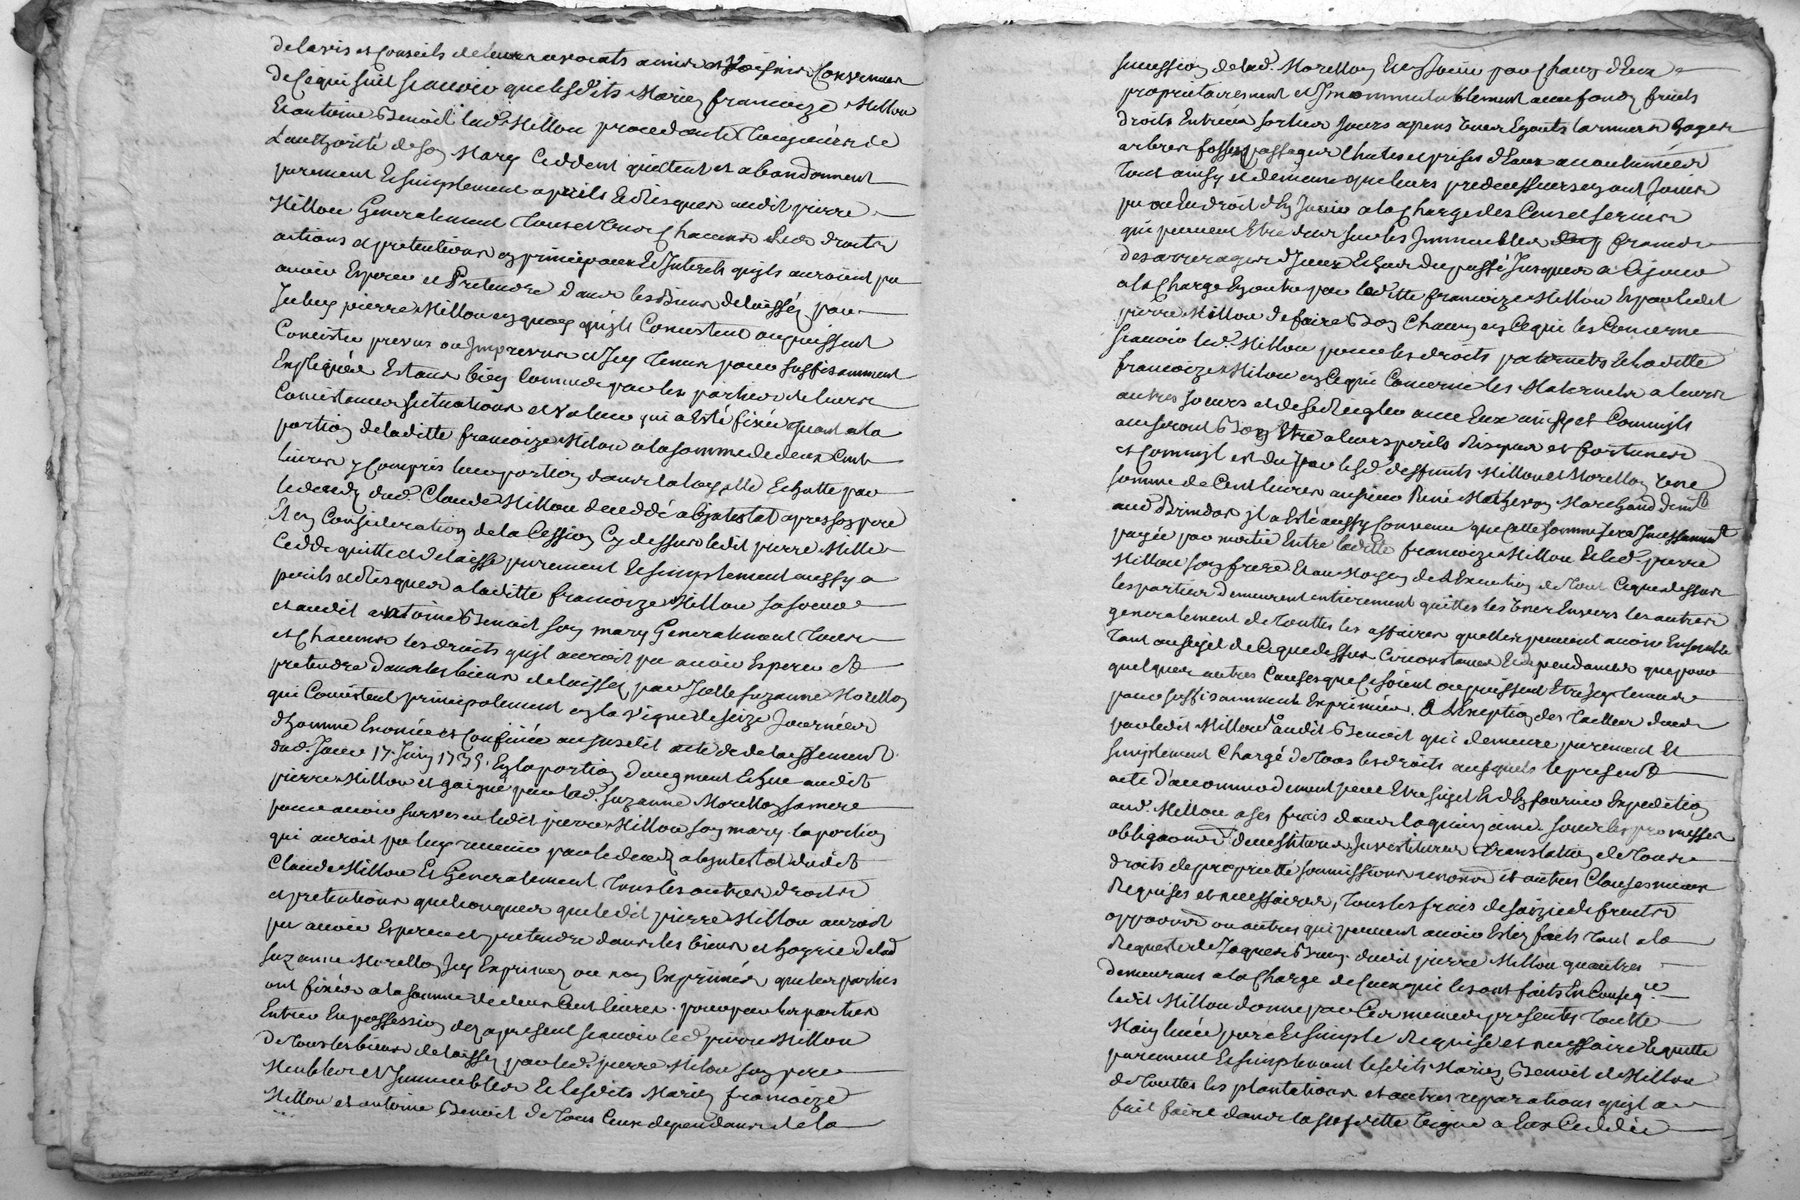 de lavis et Conseils de leurs avocats amis et Convenus
de Ce qui suit scauoir que lesdits Mariez francoize Millou
Et antoine Benoit lad. Millou procedante toujours de
Lauthorité de son Mary Ceddent quittent et abandonnent
purement Et simplement a perils Et risques audit pierre
Millou Generalement tous et Vns Chacuns les droits
actions et pretentions en principaux Et Interets quils auroient pu
auoir Esperer et Pretendre dans les Biens delaissés par
feu pierre Millou en quoy quils Consistent ou puissent
Consister prevus ou Impreveus et Icy tenus pour suffisamment
Expliqués Estant bien Connus par les parties de leurs
Consistances situations et Valeur qui a Esté fixée quant a la
portion de laditte francoize Millou a la somme de deux Cent
livres y Compris leur portion dans Echutte par
le deceds dud. Claude Millou decedé abintestat apres son pere
Et en Consideration de la Cession Cy dessus ledit pierre Millou
Cedde quitte et delaisse purement Et simplement aussy a
perils et Risques a laditte francoize Millou sa soeur
et audit antoine Benoit son mary Generalement tous
et Chacuns les droits quil auroit pu auoir Esperer et
pretendre dans les biens delaissés par Suzanne Morellon
qui Consistent principalement en la Vigne de seize Journées
dhomme Enoncée et Confinée au susdit acte de delaissement
dud. Jour 17 Juin 1735, En la portion daugment Echue audit
pierre Millou et gaigné par lad. Suzanne Morellon sa mere
pour auoir survescu ledit pierre Millou son mary la portion
qui auroit pu luy venir par le deceds abintestat dudit
Claude Millou Et Generalement tous les autres droits
et pretentions quelconques que ledit pierre Millou auroit
pu auoir Esperer et pretendre dans les biens et hoyrie de lad.
Suzanne Morellon Icy Exprimez ou non Exprimés que les parties
ont fixés a la somme de deux Cent livres. pour par les parties
Entrer En possession des a present scauoir led. pierre Millou
de tous les biens delaissés par led. pierre Millou son pere
Meubles et Immeubles Et lesdits Mariez francoize
Millou et antoine Benoit de tous Ceux dependants de la
succession de lad. Morellon En Jouir par Chacun dEux
propriétairement et Incommutablement aux fonds fruits
droits Entrées sorties Jours apens Vues Egouts
arbres fossés passages Chutes et prises dEaux accoutumées
tout ainsy et de meme que leurs predecesseurs en ont Joui
pu ou Eu droit dEn Jouir a la Charge des Cens et seruis
qui peuvent Etre deus sur les Immeubles francs
des arrerages dIceux Echus du passé Jusques a Ce jour
a la Charge En outre par laditte francoize Millou Et par ledit
pierre Millou de faire Bon Chacun en Ce qui les Concerne
scauoir led. Millou pour les droits paternels Et laditte
francoize Millou en Ce qui Concerne les Maternels a leurs
autres soeurs et de se Regler avec Eux ainsy et Comme ils
auseront Bon Etre a leurs perils Risques et fortunes
et Comme il est du par lesd. deffunts Millou et Morellon Vne
somme de Cent livres au sieur René Matheron Marchand
aud. Brindas il a Esté aussy Convenu que cette somme sera Incessamment
payée par moitié Entre laditte francoize Millou Et led. pierre
Millou son frere Et au Moyen de lExecution de tout Ce que dessus
les parties demeurent entierement quittes les Vnes Envers les autres
generalement de touttes les affaires quelles peuvent auoir Ensemble
tant au sujet de Ce que dessus Circonstances Et dependances que pour
quelques autres Causes que Ce soient ou puissent Etre Icy tenues
pour suffisamment Exprimées. a lException des tailles dues
par ledit Millou audit Benoit qui demeure purement Et
simplement Chargé de tous les droits ausquels le present
acte daccommodement peut Etre sujet Et dEn fournir Expedition
aud. Millou a ses frais dans la quinzaine. sous les promesses
obligaons. devestitures Investitures translation de tous
droits de proprieté soumissions renons. et autres Clauses
Requises et necessaires, tous les frais de saizie de fruits
ou autres qui peuvent auoir Estez faits tant a la
Requeste de Jaques dudit pierre Millou quautres
demeurans a la Charge de Ceux qui les ont faits En Conseq.ce
ledit Millou donne par Ces memes presentes toutte
Main leuée pure Et simple Requise et necessaire Et quitte
purement Et simplement lesdits Mariez Benoit et Millou
de touttes les plantations et autres reparations quil a
fait faire dans la susditte Vigne a Eux Ceddée